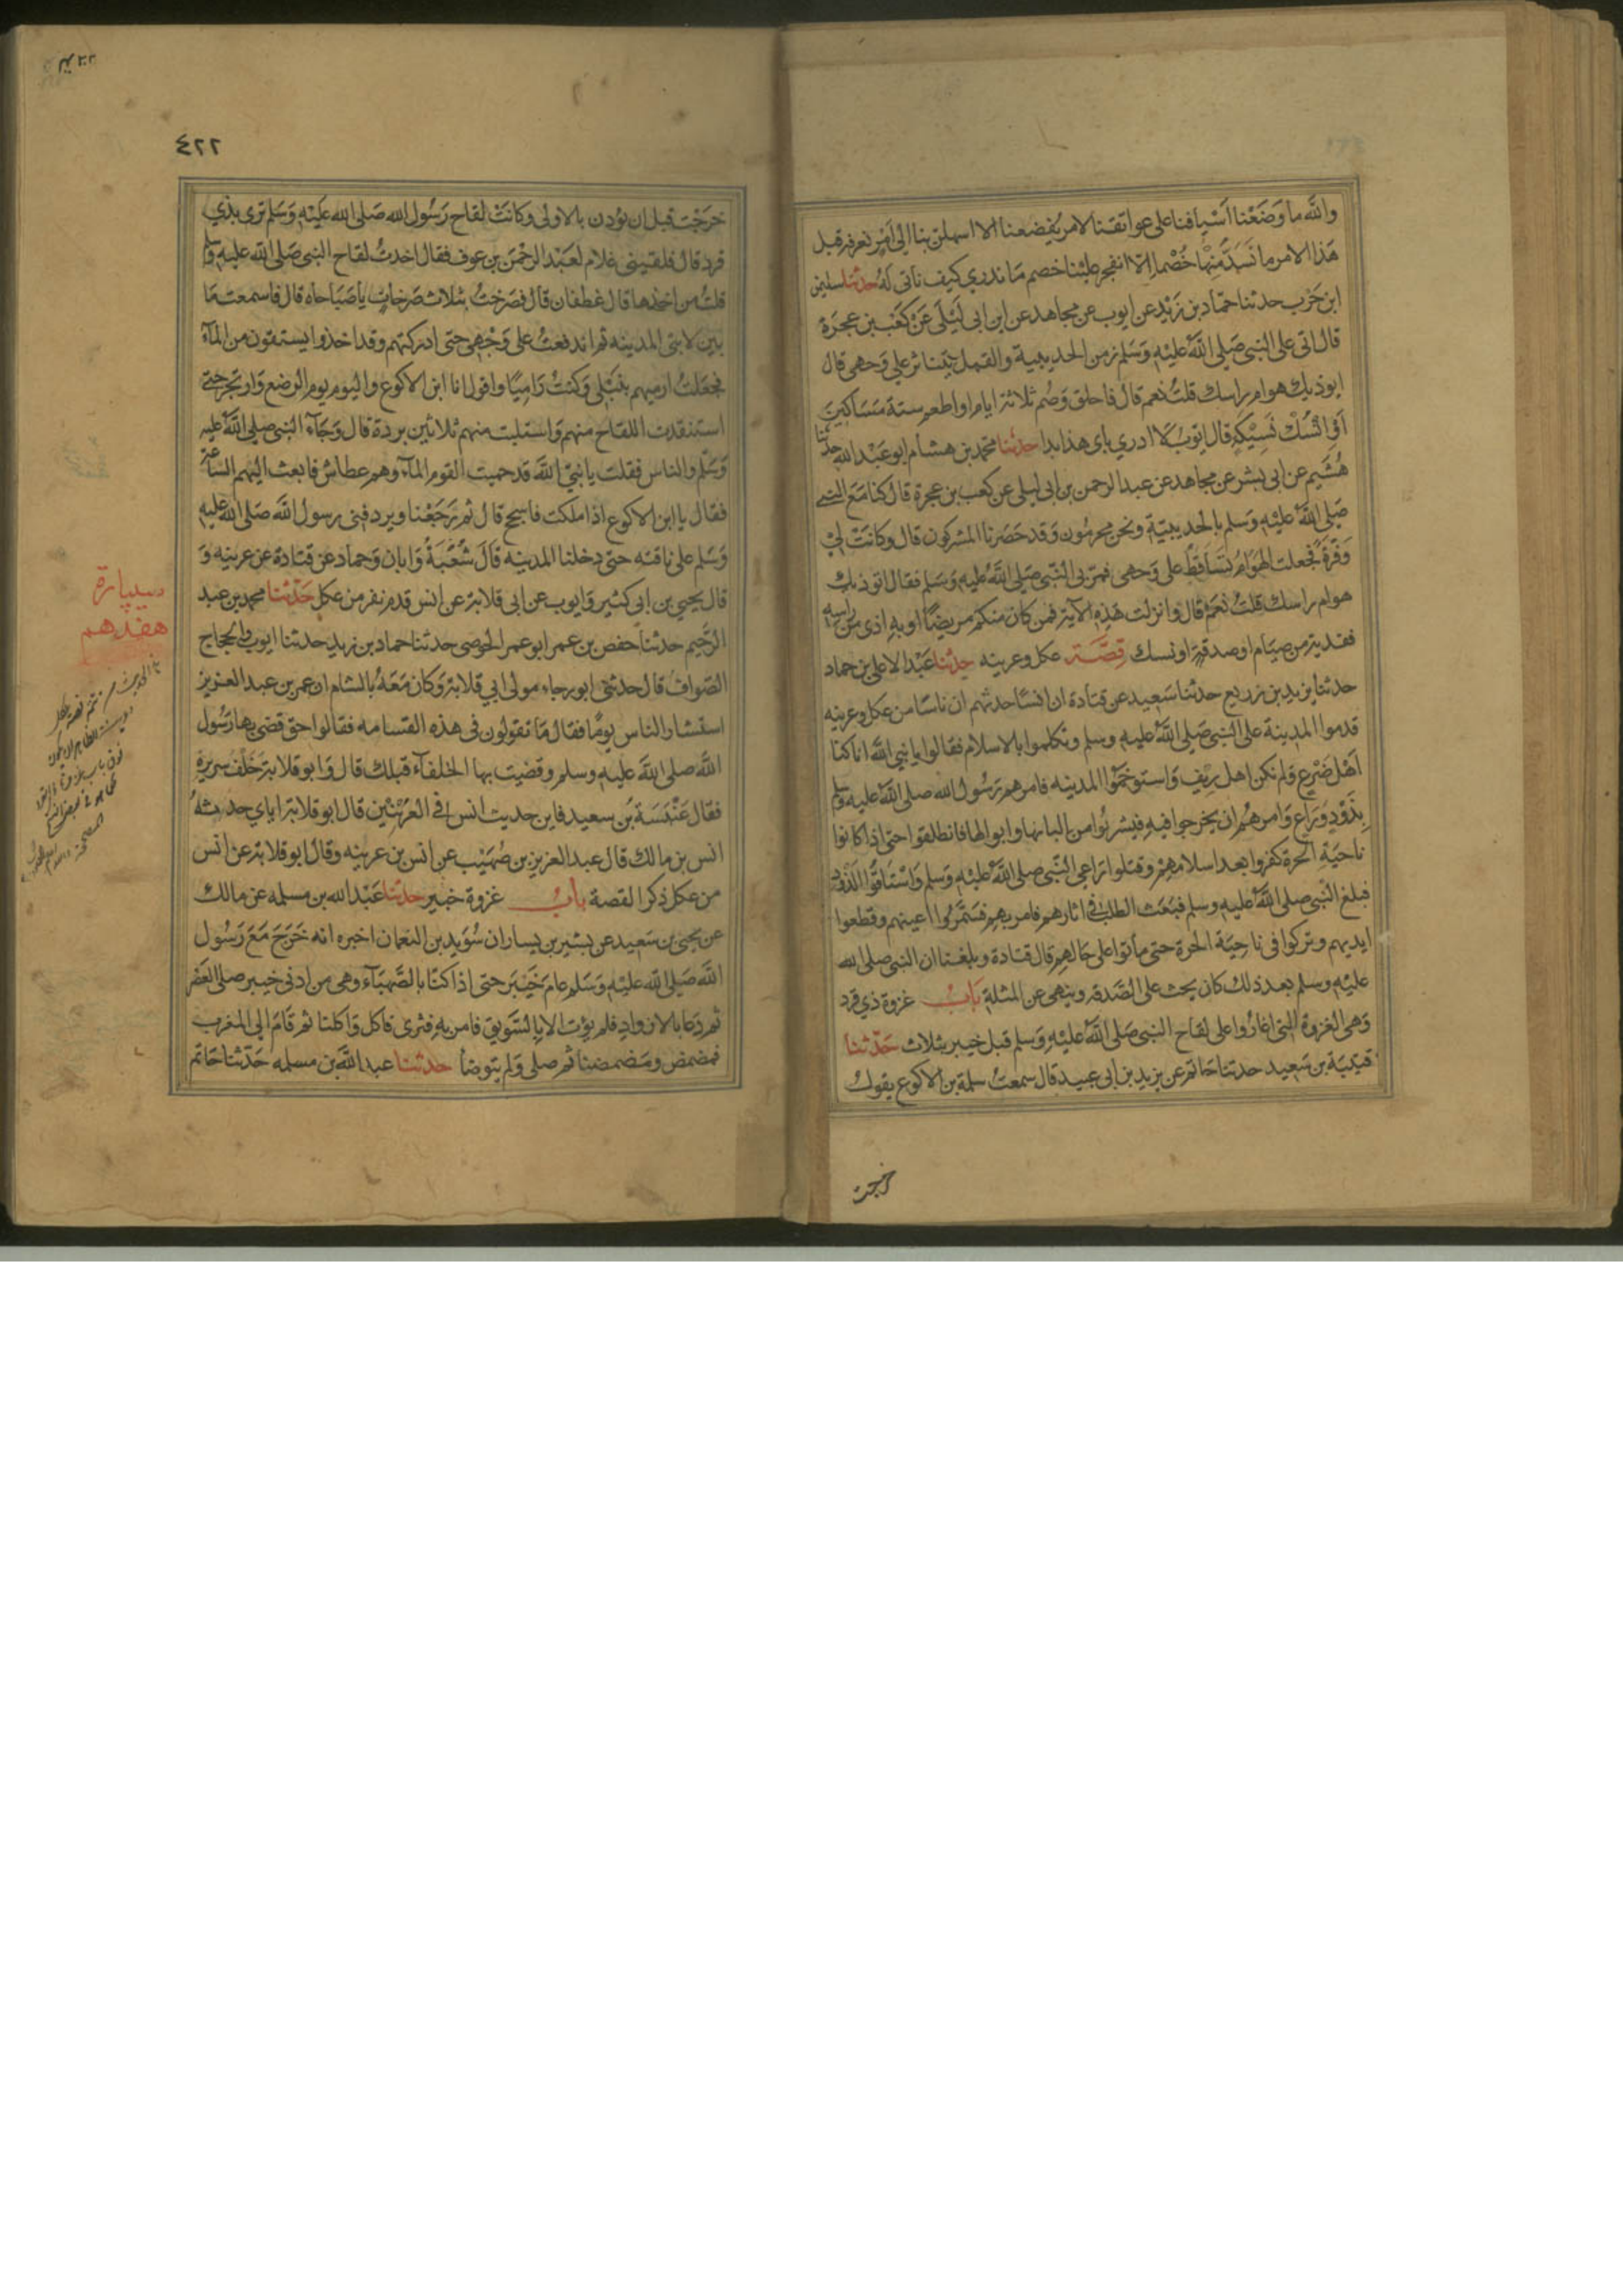 والله ما وَضَعْنا اَسْيافنا على عواتقنا لامر يُفضعنا الا اسهلن بنا الى اَمْرٍ نعرفه قبل
هَذا الامر ما نَسُدّ مِنْها خُصْما اِلّا انفجر علينا خصم مَا ندري كيف نأتى لَهُ حدثنا سليمن
ابن حَرْب حدثنا حمّاد بن زَيْد عن ايوب عن مجاهد عن ابن ابى لَيْلَى عَنْ كَعْب بن عجرَة
قال اتى علىّ النبى صَلى اللّٰه عليْهِ وَسَلم زمن الحديبية والقمل يتناثر علي وَجهى قال
ايوذيك هوام راسك قلتُ نعم قال فاحلق وَصُم ثلاثة ايام او اطعم ستة مَسَاكينَ
اَوِ انْسُكْ نَسِيْكَةً قال ايوبُ لا ادري باى هذا بدا حدثنا محمد بن هشام ابو عَبْد الله حدثنا
هُشَيم عن ابى بشر عن مجاهد عن عبد الرحمن بن ابى ليلى عن كعب بن عجرة قال كنا مَع النبى
صَلى اللّٰهُ عليْهِ وَسَلم بالحديبيّة ونحن محرمُون وَقد حَصَرنا المشركون قال وكانَتْ لِىْ
وَفْرَةٌ فجعلت الهَوَامُ تَسَاقَطُ على وَجهى فمرّ بى النّبى صَلى اللّٰهُ عليه وَسَلم فقال اتوذيك
هوام راسك قلتُ نَعَم قال وانزلت هَذِه الآية فمن كان منكم مريضًا او به اذى من راسه
ففدية من صيَام او صدقة او نسك قِصَّة عكل وعرينه حدثنا عَبْد الاعلى بن حماد
حدثنا يزيد بن زريع حدثنا سَعِيد عن قتادة ان انسًا حدثهم ان ناسًا من عكل وعرينه
قدموا المدينة على النبى صَلى اللّٰهُ عليهِ وسلم وتكلموا بالاسلام فقالوا يا نبى اللّٰه انا كنا
اَهْل ضَرْعٍ وَلم نكن اهل رِيْفٍ وَاستوخَمُوا المدينه فامر هم رَسُول الله صلى اللّٰهُ عليه وسلم
بِذَوْدٍ وَرَاعٍ وَامرهُم ان يخرجوا فيهِ فيشربُوا من البانها وابوالها فانطلقوا حتى اذا كانوا
ناحيَةِ الحرّة كفروا بعد اسلامهِمْ وقتلوا رَاعِى النّبى صلى اللّٰهُ عليْهِ وَسَلم وَاسْتَاقُوا الذّود
فبلغ النبى صلى اللّٰهُ عليهِ وسلم فبَعَث الطلب فى اثارهم فامر بهم فسَمَّرُوا اعينهم وقطعوا
ايديهم وتركوا فى ناحِيَة الحرة حتى ماتوا على حَالهِم قال قتادة وبلغنا ان النبى صلى الله
عليْهِ وسلم بعد ذلك كان يحث على الصَّدقه وينهى عن المثلة بَابُ غزوة ذي قرد
وَهى الغزوة التى اغارُوا على لقاح النبى صَلى اللّٰهُ عليْهِ وَسَلم قبل خيبر بثلاث حَدّثنا
قتيبَة بن سَعِيد حدثنا حَاتم عن يزيد بن ابى عبيد قال سمعتُ سلمة بن الاكوع يقول
خرجت
٤٢٢
خرَجْت قبل ان يؤذن بالاولى وكانَتْ لقاح رَسُول الله صَلى الله عَليْهِ وَسَلم ترعى بذي
قرد قال فلقينى غلام لعَبْد الرحْمَن بن عوف فقال اخذتْ لقاح النبى صَلى اللّٰه عليهِ وسلم
قلتُ من اخذها قال غطفان قال فصَرختُ بثلاث صَرخاتٍ ياصَبَاحاه قال فاسمعت مَا
بين لابتى المدينه ثم اندفعتُ على وَجْهِى حتى ادركتهم وقد اخذوا يستقون من المآء
فجعَلتُ ارميهم بنَبْلى وَكنتُ رَاميًا واقول انا ابن الاكوع واليوم يوم الرضع وَارتجز حتى
استنقذت اللقاح منهم وَاستلبت منهم ثلاثين بردة قال وَجَآءَ النبى صلى اللّٰهُ عليهِ
وَسَلّم والناس فقلت يا نبىّ اللّٰه قد حميت القوم المآءَ وهم عطاش فابعث اليهم السّاعة
فقال يا ابن الاكوع اذا ملكت فاسجح قال ثم رَجَعْنا ويردفنى رسول اللّٰه صَلى اللّٰه عليه
وَسَلم على ناقته حتى دخلنا المدينه قَالَ شُعْبَةُ وَابان وَحماد عن قتادة عن عرينه وَ
قال يحيى بن ابى كثير وَايوب عن ابى قلابة عن انس قدم نفر من عكل حَدّثنا محمد بن عبد
الرّحيم حدثنا حفص بن عمر ابو عمر الحوضى حدثنا حماد بن زيد حدثنا ايوب والحجاج
الصّواف قال حدثنى ابو رجاء مولى ابي قلابة وَكان مَعَهُ بالشام ان عمر بن عبد العزيز
استشار الناس يومًا فقال مَا تقولون فى هذه القسامه فقالوا حق قضى بها رَسُول
اللّٰه صلى اللّٰهُ عليهِ وسلم وقضيت بها الخلفآء قبلك قال وَابو قلابة خَلْف سريره
فقال عَنْبَسَة بن سعيد فاين حديث انس فى العُرَنيّين قال ابو قلابة اياي حدثهُ
انس بن مالك قال عبد العزيز بن صُهَيْب عن انس بن عرينه وقال ابو قلابة عن انس
من عكل ذكر القصة بابُ غزوة خيبر حدثنا عَبْد الله بن مسلمه عن مالك
عن يحيى بن سَعِيد عن بشير بن يسار ان سُوَيد بن النعمان اخبره انه خَرَجَ مَعَ رَسُول
اللّٰه صَلى اللّٰه عليْهِ وَسَلم عام خَيْبَر حتى اذا كنّا بالصَّهبَآء وهى من ادنى خيبر صلى العَصْر
ثم دَعا بالازوادِ فلم يؤت الا بالسَّويق فامر بهِ فثرى فاكل وَاكلنا ثم قَامَ الى المغرب
فمضمض ومَضمضنا ثم صلى وَلم يتوضأ حدثنا عبد اللّٰه بن مسلمه حَدّثنا حَاتم
سيپارۀ
هفدهم